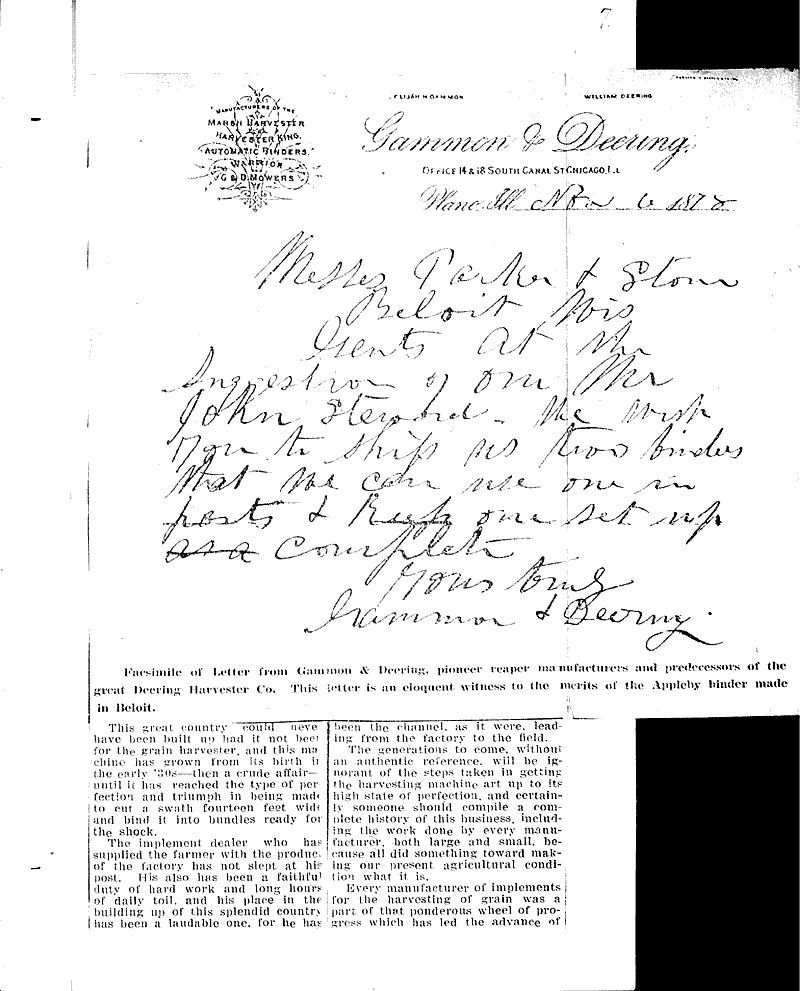 7
ELIJAH H GAMMON
WILLIAM DEERING
MANUFACTURERS OF THE
MARSH HARVESTER
HARVESTER KING,
AUTOMATIC BINDERS.
WARRIOR
G & D MOWERS
Gammon & Deering,
OFFICE 14 & 18 SOUTH CANAL ST CHICAGO, ILL
Plano, Ill Nov 6 1878
Messrs Parker & Stone
Beloit Wis
Gents At the
Sugestion of our Mr
John Steward - We wish
You to ship us two binders
that we can use one in
parts & Keep one set up
as a complete
Yours truly
Gammon & Deering.
Facsimile of Letter from Gammon & Deering, pioneer reaper manufacturers and predecessors of the
great Deering Harvester Co. This letter is an eloquent witness to the merits of the Appleby binder made
in Beloit.
This great country could neve
have been built up had it not bee
for the grain harvester, and this ma
chine has grown from its birth i
the early '30s—then a crude affair—
until it has reached the type of per
fection and triumph in being made
to cut a swath fourteen feet wide
and bind it into bundles ready for
the shock.
The implement dealer who has
supplied the farmer with the produc
of the factory has not slept at his
post. His also has been a faithful
duty of hard work and long hours
of daily toil, and his place in the
building up of this splendid country
has been a laudable one, for he has
been the channel, as it were, lead-
ing from the factory to the field.
The generations to come, without
an authentic reference, will be ig-
norant of the steps taken in getting
the harvesting machine art up to its
high state of perfection, and certain-
ly someone should compile a com-
plete history of this business, includ-
ing the work done by every manu-
facturer, both large and small, be-
cause all did something toward mak-
ing our present agricultural condi-
tion what it is.
Every manufacturer of implements
for the harvesting of grain was a
part of that ponderous wheel of pro-
gress which has led the advance of